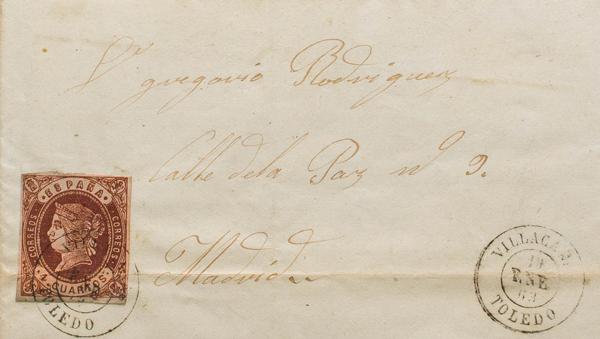 Sr gregorio Rodriguez
Calle de la Paz nº 9.
Madrid
ESPAÑA
CORREOS
CORREOS
4 CUARTOS
TOLEDO
VILLACAÑAS
19
ENE
63
TOLEDO